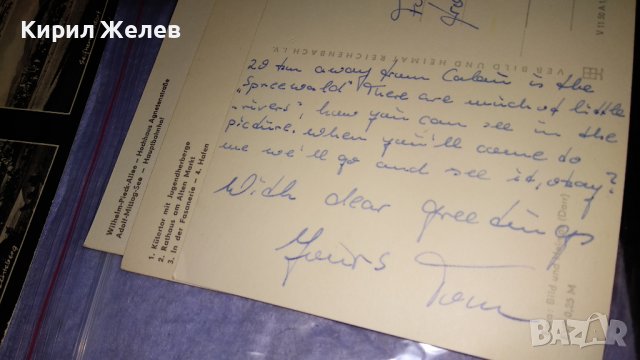 Кирил Желев
VEB BILD UND HEIMAT REICHENBACH I.V.
V 11 50 A 1
20 km away from Calau is the
„Spreewald" There are much of little
rivers, how you can see in the
picture. When you'll come to
me we'll go and see it, okay?
With dear greetings
Yours Tom
Wilhelm-Pieck-Allee – Hochhaus Agnetenstraße
Adolf-Mittag-See – Hauptbahnhof
1. Külztor mit Jugendherberge
2. Rathaus am Alten Markt
3. In der Fasanerie – 4. Hafen
Bild und Heimat (Darr)
0,25 M
bazar